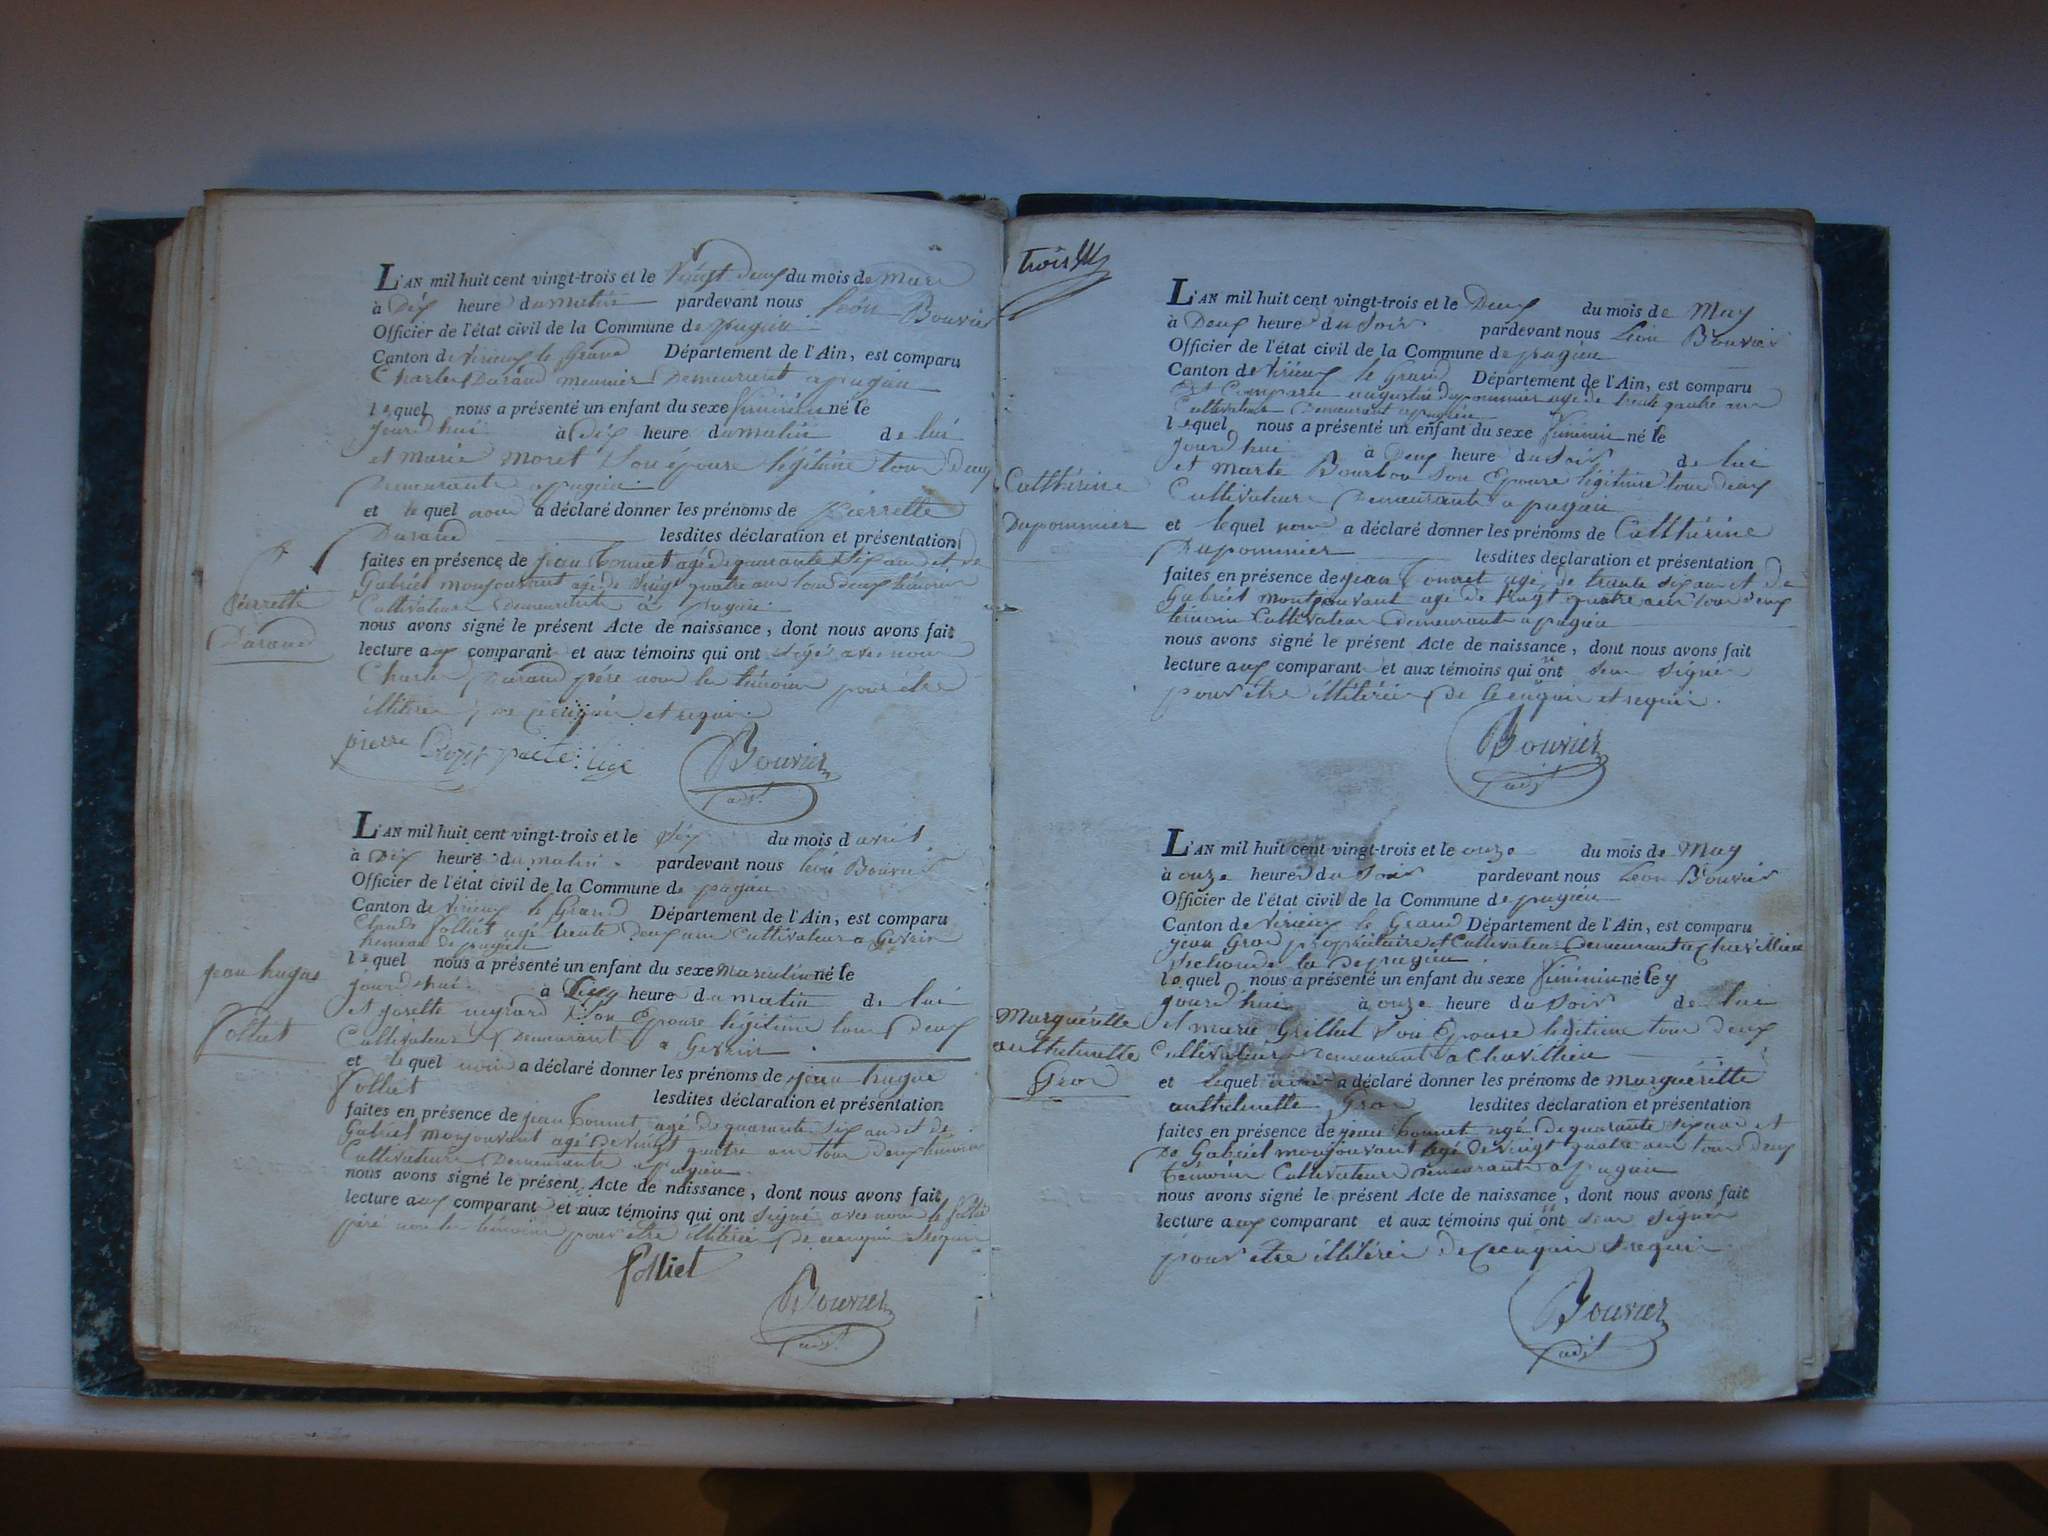 L'AN mil huit cent vingt-trois et le Vingt deux du mois de mars
à Dix heure du matin pardevant nous léon Bouvier
Officier de l'état civil de la Commune de pugieu
Canton de Virieux le Grand Département de l'Ain, est comparu
Charles Durand meunier Demeurant a pugieu
lequel nous a présenté un enfant du sexe féminin né le
jourd'hui à Dix heure du matin de lui
et marie moret Son épouse légitime tous deux
Demeurants a pugieu.
et lequel nous a déclaré donner les prénoms de pierrette
Durand lesdites déclaration et présentation
faites en présence de jean Tonnet agé de quarante Six ans et de
Gabriel monjouvant agé de Vingt quatre ans tous deux témoins
Cultivateurs Demeurants à pugieu.
nous avons signé le présent Acte de naissance, dont nous avons fait
lecture aux comparant et aux témoins qui ont signé avec nous
Charles Durand père non les témoins pour être
illitérés de ce enquis et requis.
pierrette
Durand
pierre
Bouvier
adjt.
L'AN mil huit cent vingt-trois et le Six du mois d avril
à Dix heure du matin pardevant nous léon Bouvier
Officier de l'état civil de la Commune de pugieu
Canton de Virieux le Grand Département de l'Ain, est comparu
Claude Volliet agé trente Deux ans Cultivateur a Gevrin
hameau de pugieu
lequel nous a présenté un enfant du sexe Masculin né le
jourd'hui à heure du matin de lui
et josette Son Epouse légitime tous Deux
Cultivateurs Demeurant a Gevrin
et lequel nous a déclaré donner les prénoms de jean hugue
Volliet lesdites déclaration et présentation
faites en présence de jean Tonnet agé de quarante Six ans et de
Gabriel monjouvant agé De vingt quatre ans tous deux témoins
Cultivateurs Demeurants a pugieu.
nous avons signé le présent Acte de naissance, dont nous avons fait
lecture aux comparant et aux témoins qui ont signé avec nous le
père non les témoins pour être illitérés De ce enquis et requis
jean hugue
Volliet
folliet
Bouvier
adjt.
trois
L'AN mil huit cent vingt-trois et le Deux du mois de May
à Deux heure du Soir pardevant nous Léon Bouvier
Officier de l'état civil de la Commune de pugieu
Canton de Virieux le Grand Département de l'Ain, est comparu
Est Comparu augustin Dupommier agé de trente quatre ans
Cultivateur Demeurant a pugieu
lequel nous a présenté un enfant du sexe féminin né le
jourd'hui à Deux heure du Soir de lui
et marte Bourbon Son Epouse légitime tous deux
Cultivateurs Demeurants a pugieu
et lequel nous a déclaré donner les prénoms de Catthérine
Dupommier lesdites déclaration et présentation
faites en présence de jean Tonnet agé de trente Six ans et De
Gabriel montjouvant agé de Vingt quatre ans tous deux
témoins Cultivateurs Demeurants a pugieu
nous avons signé le présent Acte de naissance, dont nous avons fait
lecture aux comparant et aux témoins qui ont signer
pour être illitérés De Ce enquis et requis.
Catthérine
Dupommier
Bouvier
adjt
L'AN mil huit cent vingt-trois et le onze du mois de May
à onze heure du Soir pardevant nous Léon Bouvier
Officier de l'état civil de la Commune de pugieu
Canton de Virieux le Grand Département de l'Ain, est comparu
jean Gros propriétaire et Cultivateur Demeurant a Chavillieu
de pugieu.
lequel nous a présenté un enfant du sexe féminin né le
jourd'hui à onze heure du Soir de lui
et marie Grillet Son Epouse légitime tous deux
Cultivateurs Demeurant a Chavillieu
et lequel nous a déclaré donner les prénoms de Marguéritte
anthelmette Gros lesdites déclaration et présentation
faites en présence de jean Tonnet agé de quarante Six ans et
De Gabriel monjouvant agé de vingt quatre ans tous deux
témoins Cultivateurs Demeurants a pugieu
nous avons signé le présent Acte de naissance, dont nous avons fait
lecture aux comparant et aux témoins qui ont signer
pour être illitérés De Ce enquis et requis.
Marguéritte
anthelmette
Gros
Bouvier
adjt